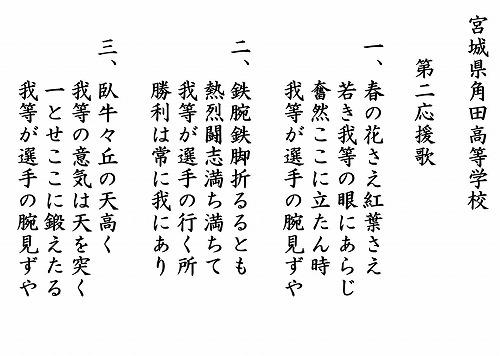 宮城県角田高等学校
第二応援歌
一、春の花さえ紅葉さえ
若き我等の眼にあらじ
奮然ここに立たん時
我等が選手の腕見ずや
二、鉄腕鉄脚折るるとも
熱烈闘志満ち満ちて
我等が選手の行く所
勝利は常に我にあり
三、臥牛々丘の天高く
我等の意気は天を突く
一とせここに鍛えたる
我等が選手の腕見ずや